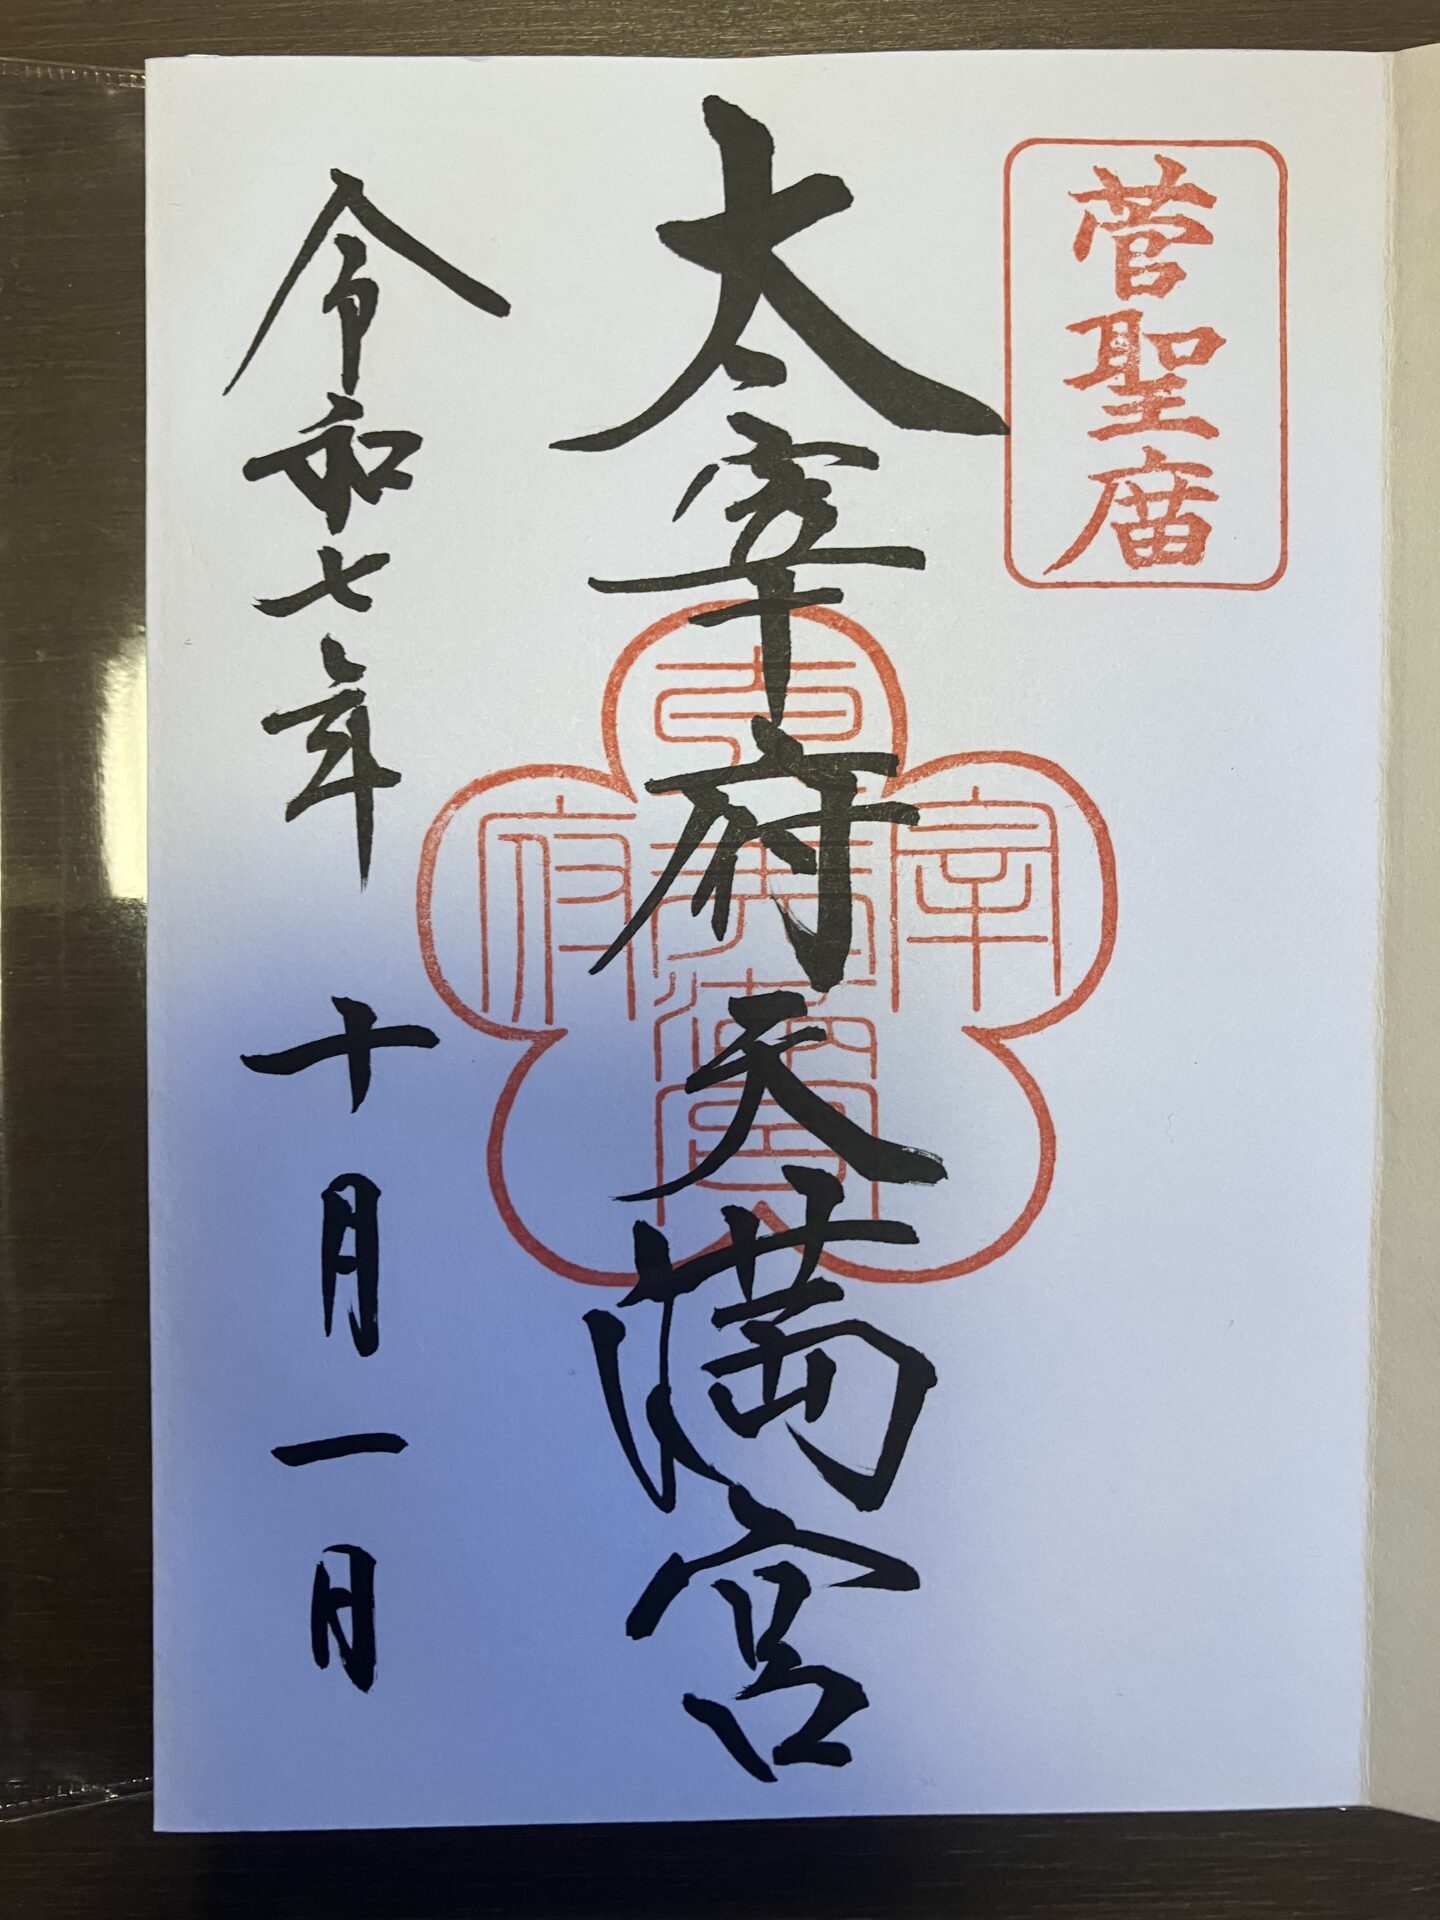 菅聖庿
太宰府天満宮
太宰府天満宮
令和七年 十月一日